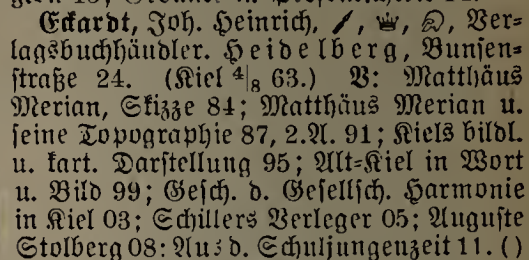 Eckardt, Joh. Heinrich, Ver-
lagsbuchhändler. Heidelberg, Bunsen-
straße 24. (Kiel 4/8 63.) V: Matthäus
Merian, Skizze 84; Matthäus Merian u.
seine Topographie 87, 2.A. 91; Kiels bildl.
u. kart. Darstellung 95; Alt-Kiel in Wort
u. Bild 99; Gesch. d. Gesellsch. Harmonie
in Kiel 03; Schillers Verleger 05; Auguste
Stolberg 08: Aus d. Schuljungenzeit 11. ()